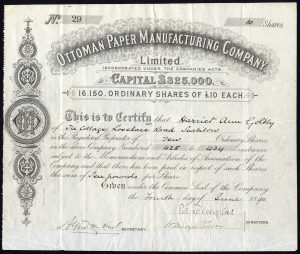 No. 29
10 Shares.
OTTOMAN PAPER MANUFACTURING COMPANY,
Limited.
INCORPORATED UNDER THE COMPANIES ACTS.
CAPITAL £325,000.
16,150, ORDINARY SHARES OF £10 EACH.
This is to Certify that Harriet Ann
of The Cottage Lovelace Road Surbiton
is the Registered Proprietor of Ten Ordinary Shares
in the above Company Numbered 425 to 434 inclusive
subject to the Memorandum and Articles of Association of the
Company and that there has been paid in respect of such Shares
the sum of Ten pounds per Share.
Given under the Common Seal of the Company
the Fourth day of June 1890
SECRETARY.
DIRECTORS.